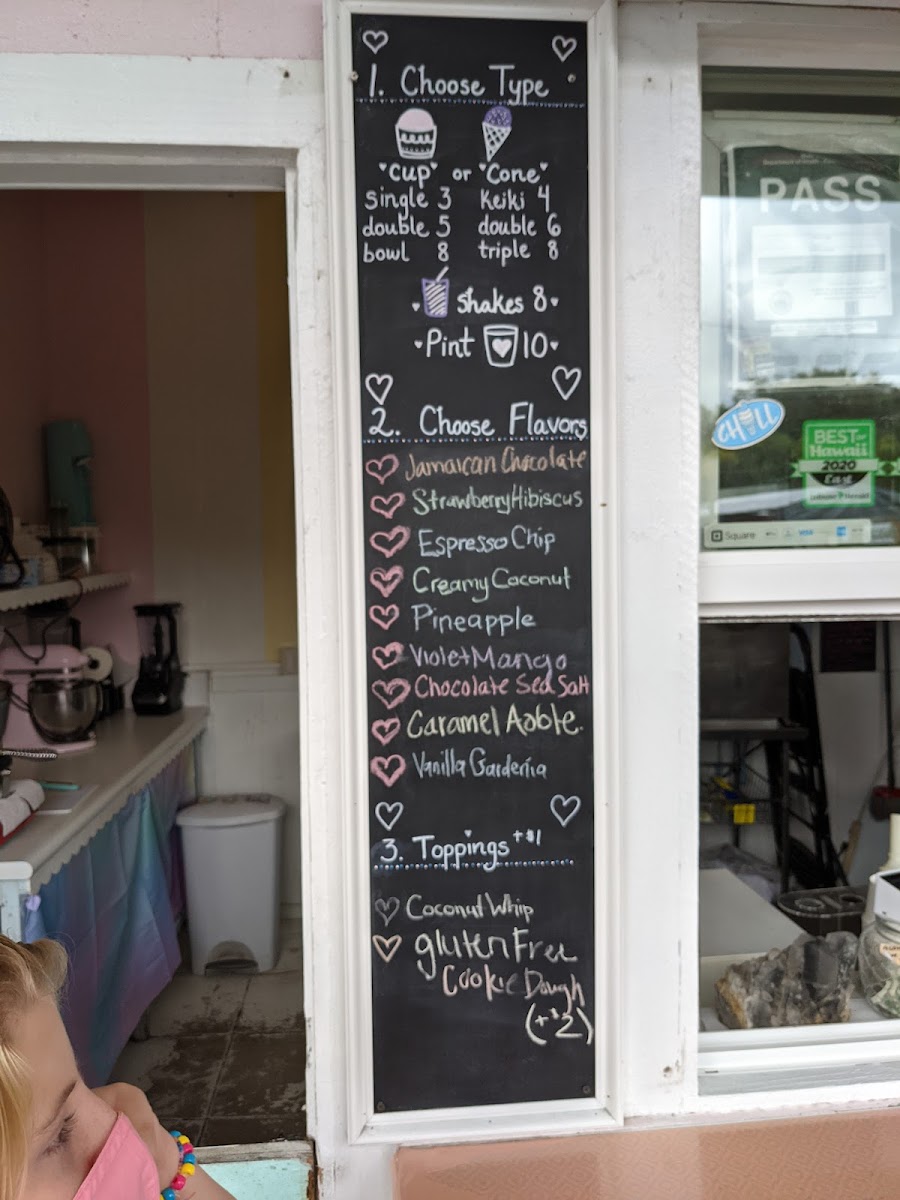 1. Choose Type
"cup" or "Cone"
single 3 keiki 4
double 5 double 6
bowl 8 triple 8
shakes 8
Pint 10
2. Choose Flavors
Jamaican Chocolate
Strawberry Hibiscus
Espresso Chip
Creamy Coconut
Pineapple
Violet Mango
Chocolate Sea Salt
Caramel Apple.
Vanilla Gardenia
3. Toppings +$1
Coconut Whip
gluten Free
Cookie Dough
(+$2)
PASS
CHILL
BEST OF
Hawaii
2020
East
Square
VISA